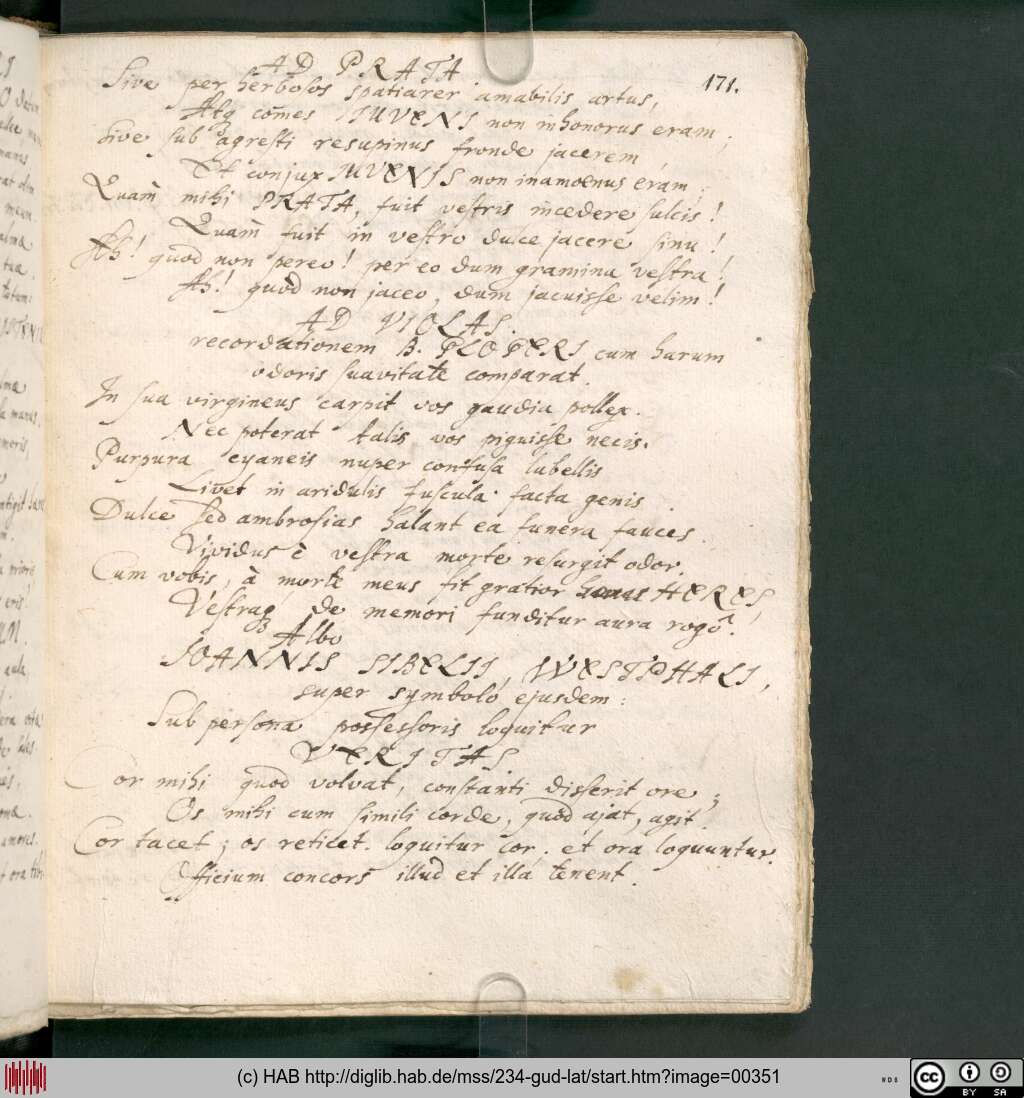 AD PRATA
171.
Sive per herbosos spatiarer amabilis artus,
Atq comes IUVENI non inhonorus eram;
Sive sub agresti resupinus fronde jacerem,
Et conjux IUVENIS non inamoenus eram;
Quam mihi PRATA, fuit vestris incedere sulcis!
Quam fuit in vestro dulce jacere sinu!
Ah! quod non pereo! per eo dum gramina vestra!
Ah! quòd non jaceo, dum jacuisse velim!
AD VIOLAS.
recordationem B. PLOPERI cum harum
odoris suavitate comparat.
In sua virgineus carpit vos gaudia pollex.
Nec poterat talis vos piguisse necis.
Purpura cyaneis nuper confusa labellis
Livet in aridulis fuscula facta genis.
Dulce sed ambrosias halant ea funera fauces.
Vividus è vestra morte resurgit odor.
Cum vobis, à morte meus fit gratior HERES,
Vestraq de memori funditur aura rogô.
Albo
IOANNIS SIBELII, WESTPHALI,
super symbolo ejusdem:
Sub persona possessoris loquitur
VERITAS.
Cor mihi quod volvat, constanti disserit ore;
Os mihi cum simili corde, quod ajat, agit.
Cor tacet; os reticet. loquitur cor. et ora loquuntur.
Officium concors illud et illa tenent.
(c) HAB http://diglib.hab.de/mss/234-gud-lat/start.htm?image=00351
cc BY SA